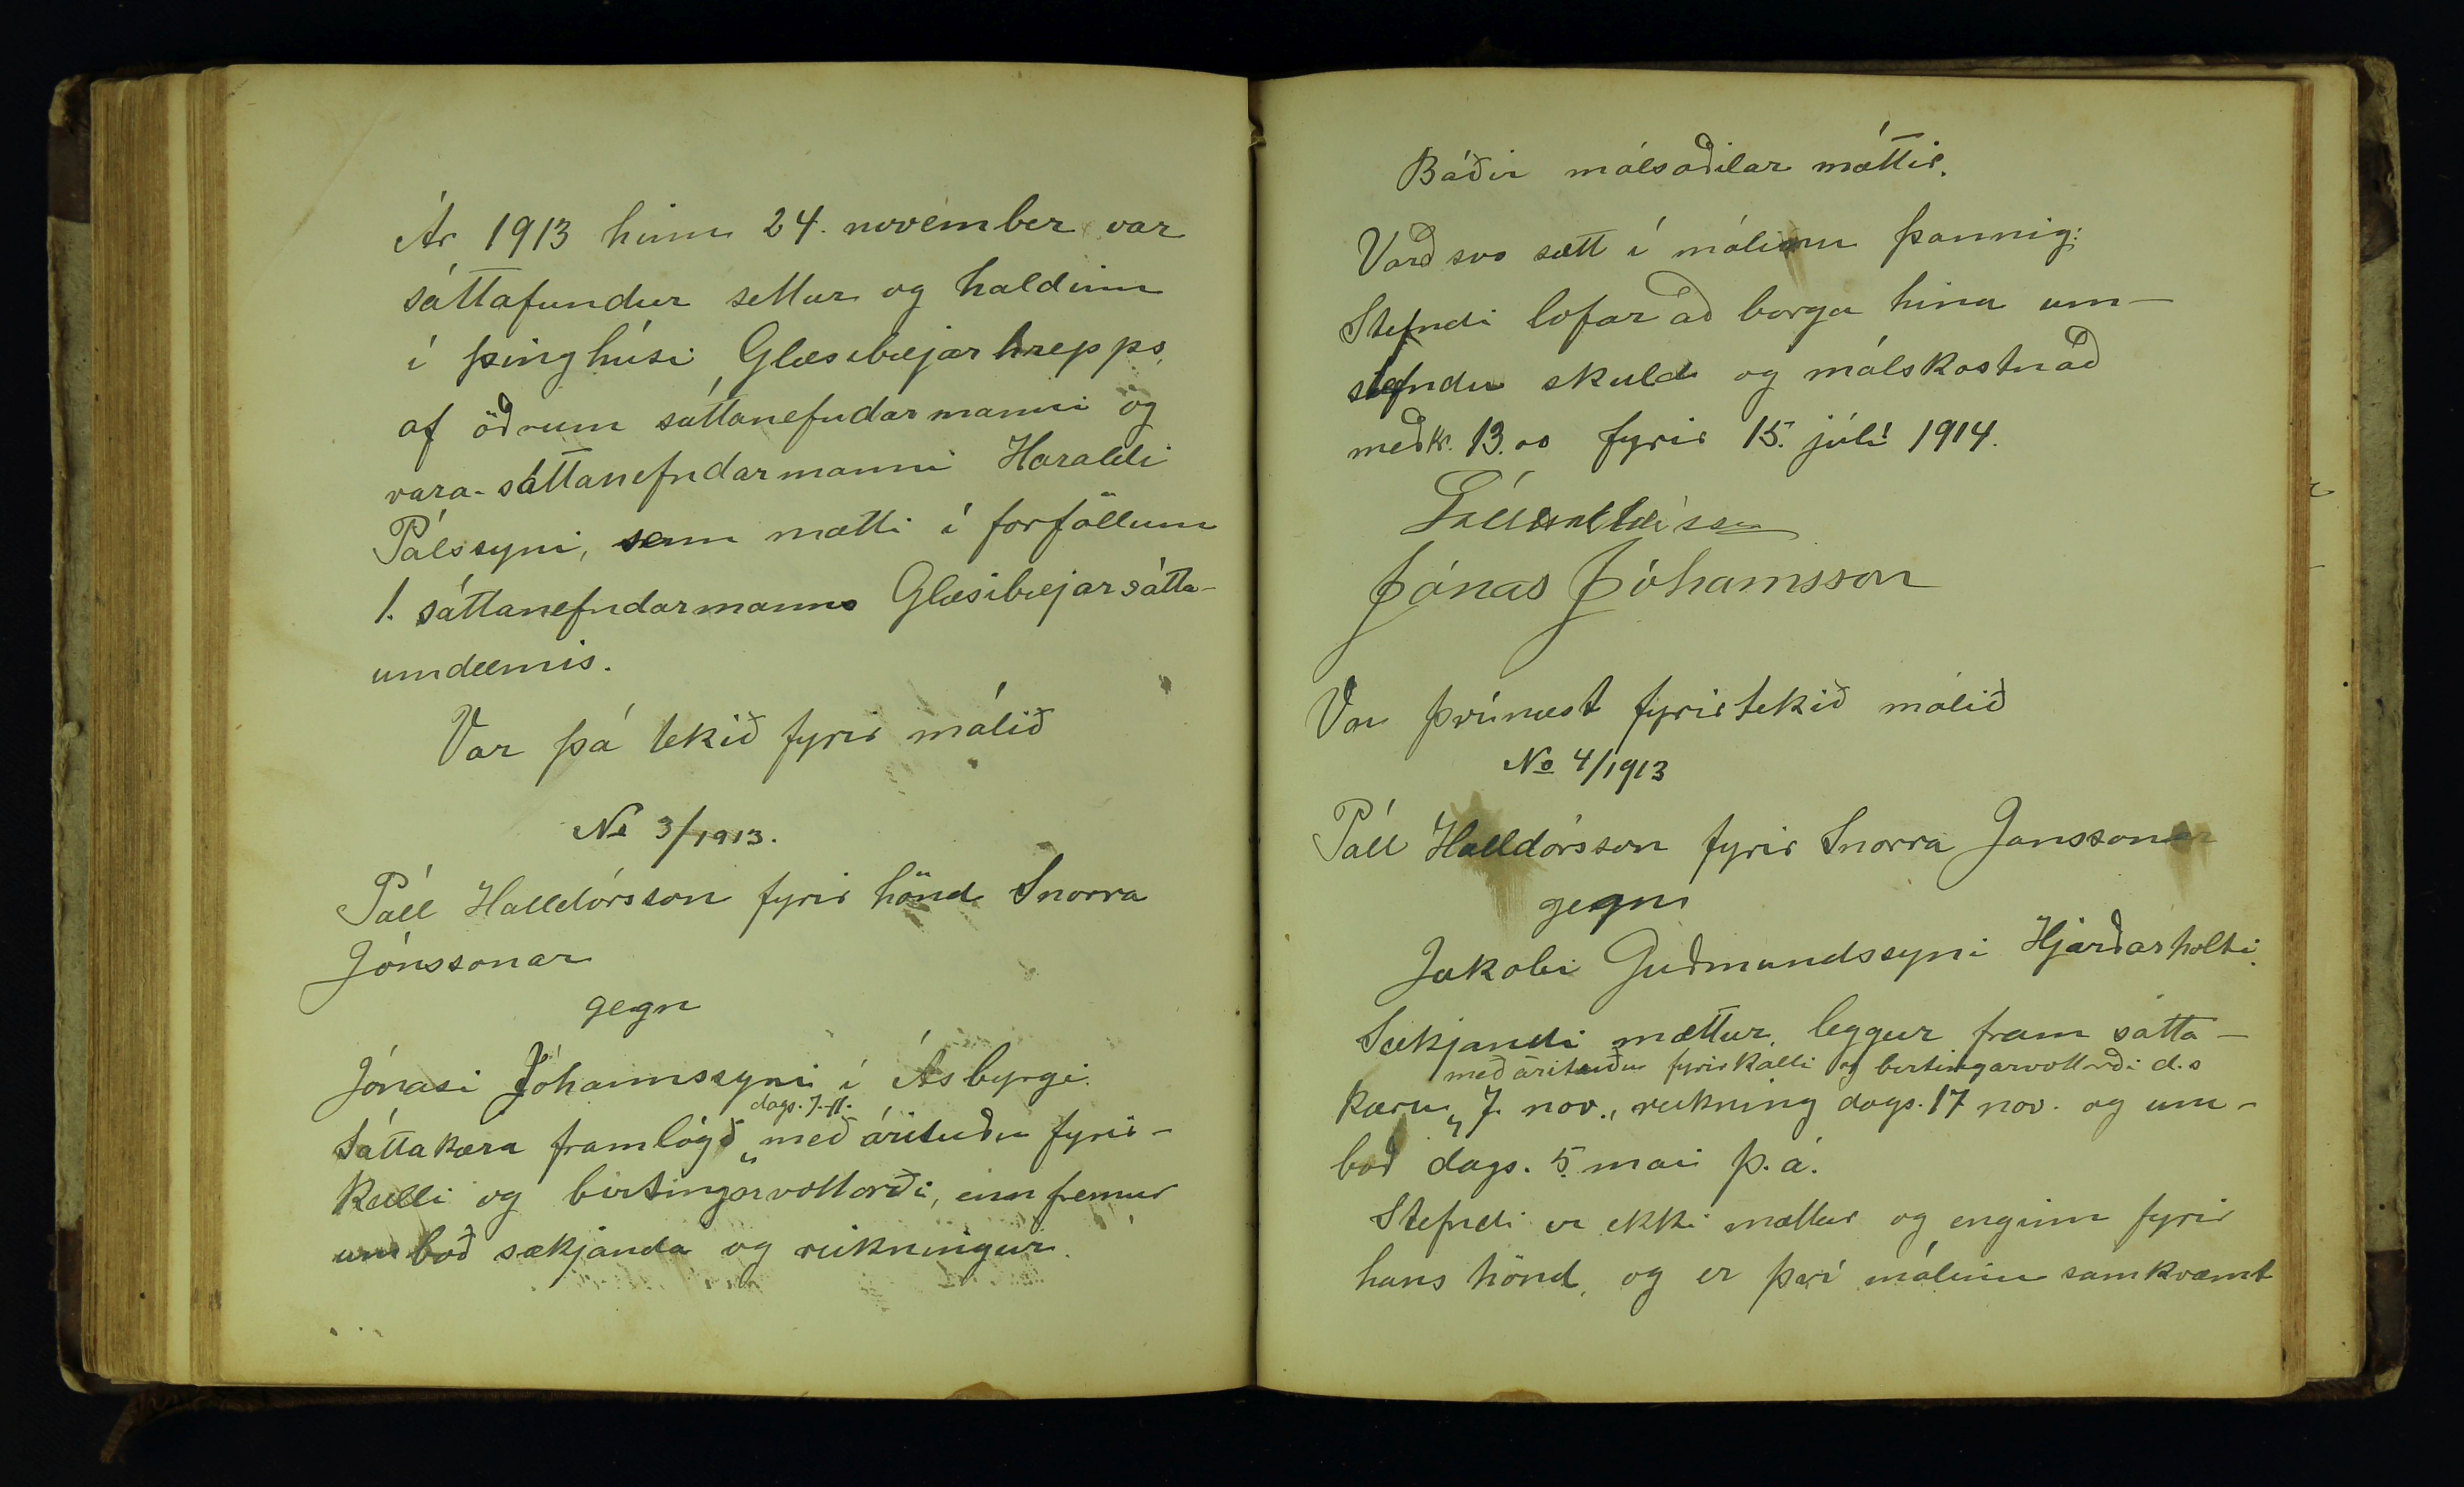 Ár 1913 hinn 24. november var
sáttafundur settur og haldinn
í þinghúsi Glæsibæjarhrepps,
af öðrum sáttanefndarmanni og
vara-sáttanefndarmanni Haraldi
Pálssyni, sem mætti í forföllum
1. sáttanefndarmanns Glæsibæjarsátta-
umdæmis.
Var þá tekið fyrir málið
No 3/1913.
Páll Halldórsson fyrir hönd Snorra
Jónssonar
gegn
Jónasi Jóhannssyni í Ásbyrgi.
dags. 7-11.
Sáttakæra framlögð „ með árituðu fyrir-
kalli og birtingarvottorði, enn fremur
umboð sækjanda og reikningur.
Báðir málsaðilar mættir.
Varð svo sætt í málinu þannig:
Stefndi lofar að borga hina um-
stefndu skuld og málskostnað
með kr. 13.00 fyrir 15. júlí 1914.
Páll Halldórsson
Jónas Jóhannsson
Var þvínæst fyrirtekið málið
No 4/1913
Páll Halldórsson fyrir Snorra Jonssonar
gegn
Jakobi Guðmundssyni Hjarðarholti.
Sækjandi mættur, leggur fram sátta-
með árituðu fyrirkalli og birtingarvottorði d.s
kæru „ 7. nov., reikning dags. 17 nov. og um-
boð dags. 5. mai þ.á.
Stefndi er ekki mættur og enginn fyrir
hans hönd, og er því málinu samkvæmt